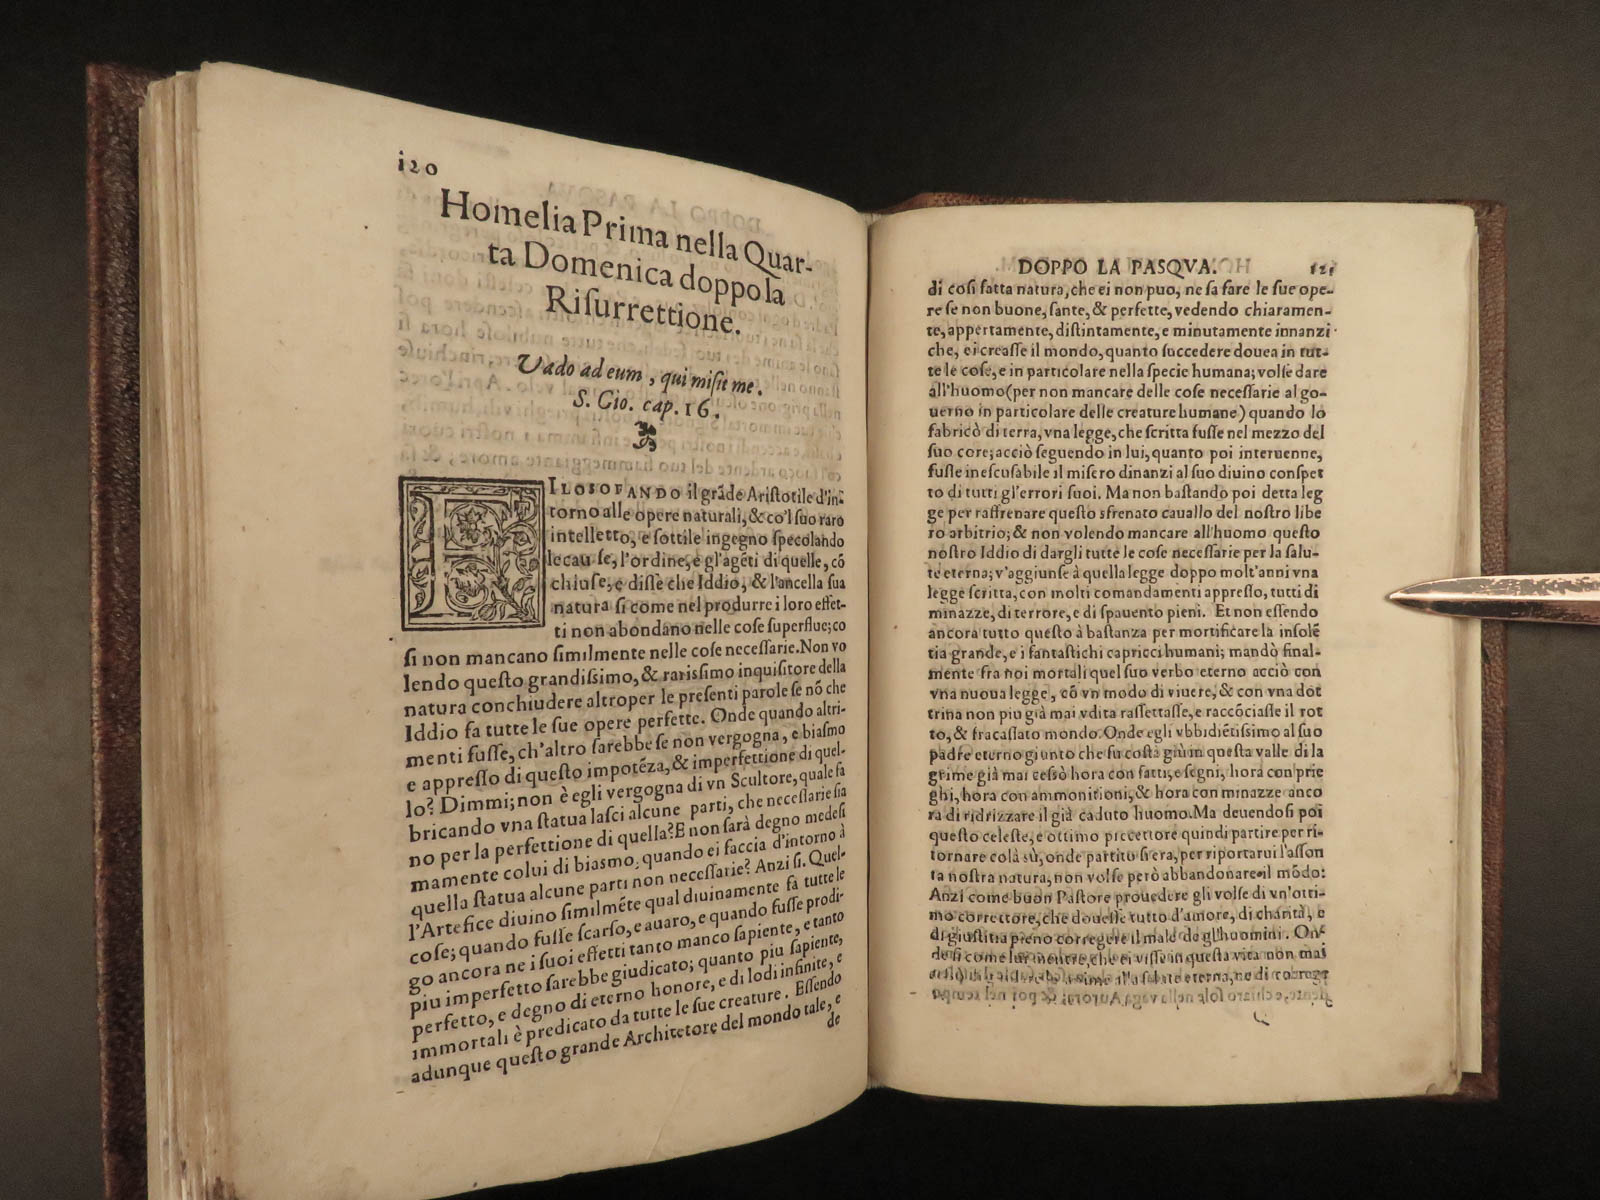 120
Homelia Prima nella Quar-
ta Domenica doppo la
Riſurrettione.
Vado ad eum, qui miſit me.
S. Gio. cap. 16.
FILOSOFANDO il grãde Ariſtotile d'in-
torno alle opere naturali, & co'l ſuo raro
intelletto, e ſottile ingegno ſpecolando
le cauſe, l'ordine, e gl'agẽti di quelle, cõ
chiuſe, e diſſe che Iddio, & l'ancella ſua
natura ſi come nel produrre i loro effet-
ti non abondano nelle coſe ſuperflue; co
ſi non mancano ſimilmente nelle coſe neceſſarie. Non vo
lendo queſto grandiſsimo, & rariſsimo inquiſitore della
natura conchiudere altro per le preſenti parole ſe nõ che
Iddio fa tutte le ſue opere perfette. Onde quando altri-
menti fuſſe, ch'altro ſarebbe ſe non vergogna, e biaſmo
e appreſſo di queſto impotẽza, & imperfettione di quel-
lo? Dimmi; non è egli vergogna di vn Scultore, quale fa
bricando vna ſtatua laſci alcune parti, che neceſſarie ſia
no per la perfettione di quella? E non ſarà degno medeſi
mamente colui di biaſmo, quando ei faccia d'intorno à
quella ſtatua alcune parti non neceſſarie? Anzi ſi. Quel-
l'Artefice diuino ſimilmẽte qual diuinamente fa tutte le
coſe; quando fuſſe ſcarſo, e auaro, e quando fuſſe prodi-
go ancora ne i ſuoi effetti tanto manco ſapiente, e tanto
piu imperfetto ſarebbe giudicato; quanto piu ſapiente,
perfetto, e degno di eterno honore, e di lodi infinite, e
immortali è predicato da tutte le ſue creature. Eſſendo
adunque queſto grande Architetore del mondo tale, e
de
DOPPO LA PASQVA. 121
di coſi fatta natura, che ei non puo, ne ſa fare le ſue ope-
re ſe non buone, ſante, & perfette, vedendo chiaramen-
te, appertamente, diſtintamente, e minutamente innanzi
che, ei creaſſe il mondo, quanto ſuccedere douea in tut-
te le coſe, e in particolare nella ſpecie humana; volſe dare
all'huomo (per non mancare delle coſe neceſſarie al go-
uerno in particolare delle creature humane) quando lo
fabricò di terra, vna legge, che ſcritta fuſſe nel mezzo del
ſuo core; acciò ſeguendo in lui, quanto poi interuenne,
fuſſe ineſcuſabile il miſero dinanzi al ſuo diuino conſpet
to di tutti gl'errori ſuoi. Ma non baſtando poi detta leg
ge per raffrenare queſto sfrenato cauallo del noſtro libe
ro arbitrio; & non volendo mancare all'huomo queſto
noſtro Iddio di dargli tutte le coſe neceſſarie per la ſalu-
te eterna; v'aggiunſe à quella legge doppo molt'anni vna
legge ſcritta, con molti comandamenti appreſſo, tutti di
minazze, di terrore, e di ſpauento pieni. Et non eſſendo
ancora tutto queſto à baſtanza per mortificare la inſolẽ
tia grande, e i fantaſtichi capricci humani; mandò final-
mente fra noi mortali quel ſuo verbo eterno acciò con
vna nuoua legge, cõ vn modo di viuere, & con vna dot
trina non piu già mai vdita raſſettaſſe, e raccõciaſſe il rot
to, & fracaſſato mondo. Onde egli vbbidiẽtiſsimo al ſuo
padre eterno giunto che fu coſtà giù in queſta valle di la
grime già mai ceſsò hora con fatti, e ſegni, hora con prie
ghi, hora con ammonitioni, & hora con minazze anco
ra di ridrizzare il già caduto huomo. Ma deuendoſi poi
queſto celeſte, e ottimo precettore quindi partire per ri-
tornare colà sù, onde partito ſi era, per riportarui l'aſſon
ta noſtra natura, non volſe però abbandonare il mõdo:
Anzi come buon Paſtore prouedere gli volſe di vn'otti-
mo correttore, che doueſſe tutto d'amore, di charità, e
di giuſtitia pieno correggere il male de gl'huomini. On-
de ſi come lui mentre, che ei viſſe in queſta vita non mai